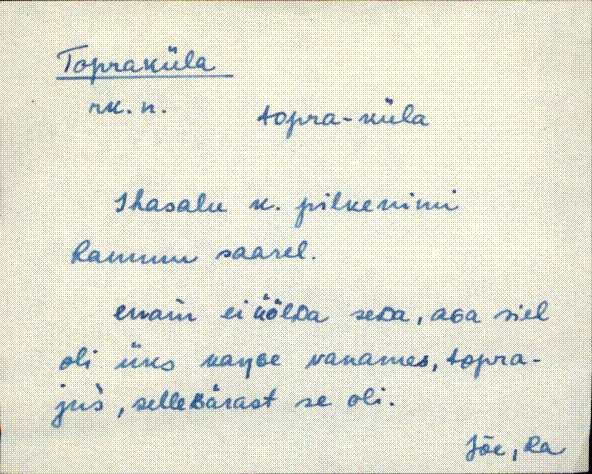 Topraküla
rk. n. topra-küla
Ihasalu k. pilkenimi
Rammu saarel.
enaiń ei üölDa seDa, aGa siel
oli üks vanames, topra-
jùś, selleBärast se oli.
Jõe, Ra